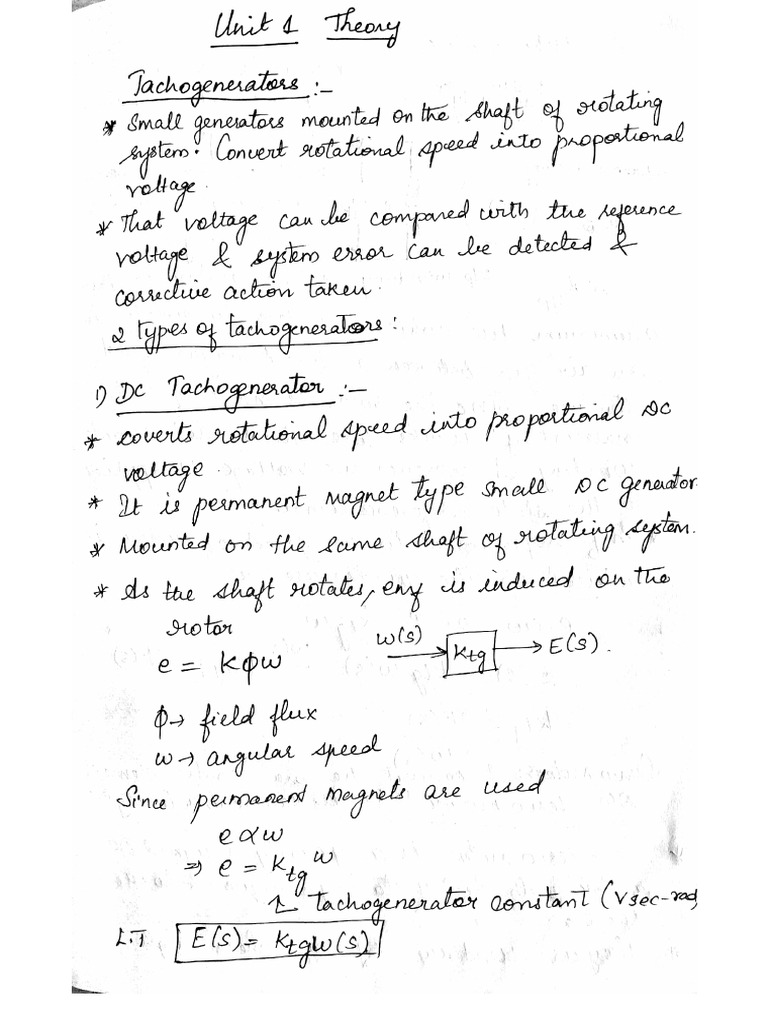 Unit 1 Theory
Tachogenerators :-
* Small generators mounted on the shaft of rotating
system. Convert rotational speed into proportional
voltage.
* That voltage can be compared with the reference
voltage & system error can be detected &
corrective action taken.
2 types of tachogenerators :
1) DC Tachogenerator :-
* coverts rotational speed into proportional DC
voltage.
* It is permanent magnet type small DC generator.
* Mounted on the same shaft of rotating system.
* As the shaft rotates, emf is induced on the
rotor
ω(s) → Ktg → E(s).
e = Kϕω
ϕ → field flux
ω → angular speed
Since permanent magnets are used
e ∝ ω
⇒ e = Ktg ω
tachogenerator constant (V sec-rad)
L.T E(s) = Ktg ω(s)